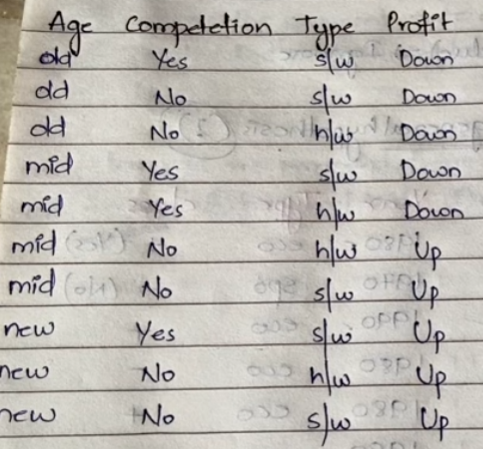 Age Competetion Type Profit
old Yes s/w Down
old No s/w Down
old No h/w Down
mid Yes s/w Down
mid Yes h/w Down
mid No h/w Up
mid No s/w Up
new Yes s/w Up
new No h/w Up
new No s/w Up